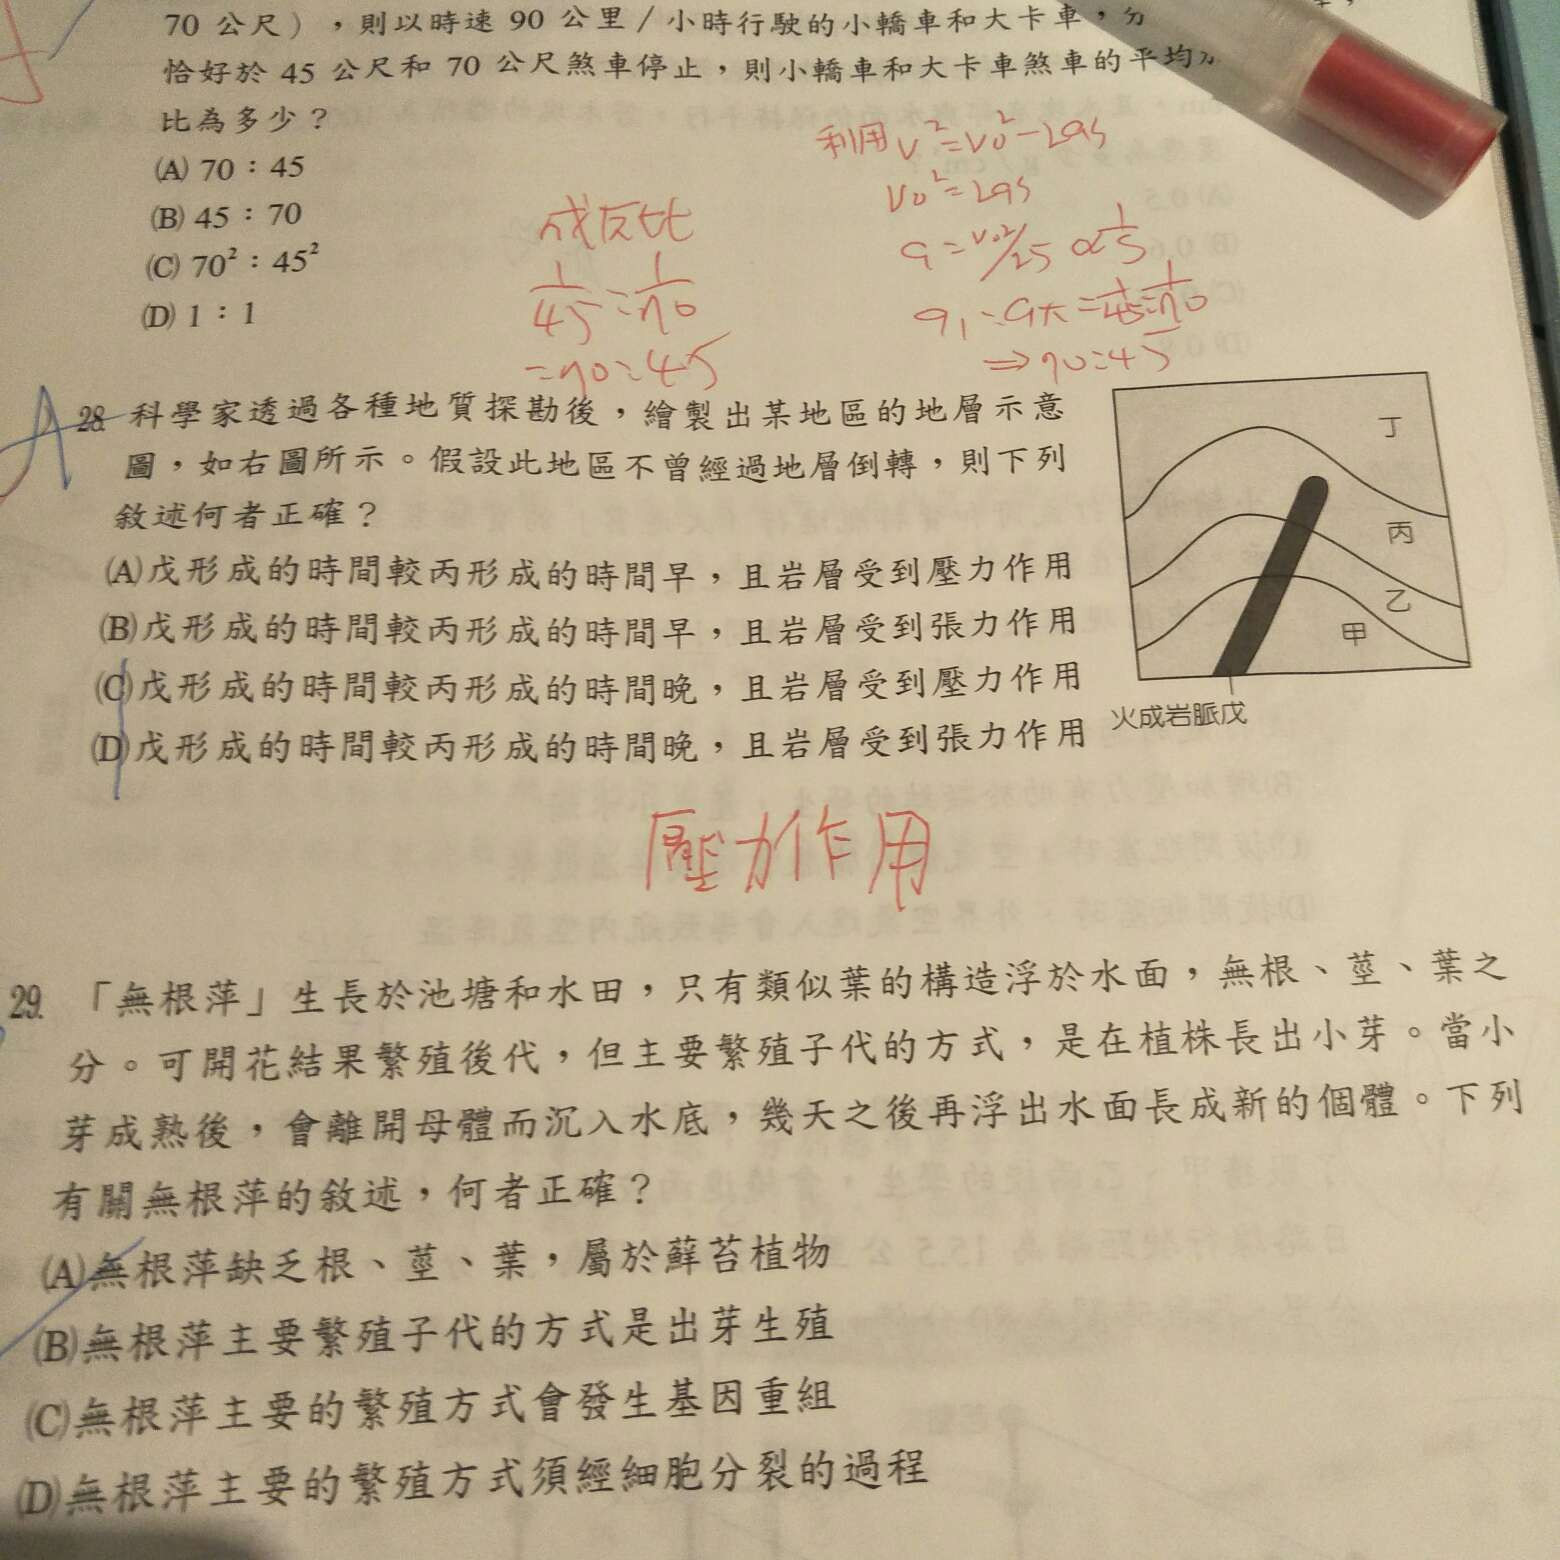 70 公尺），則以時速 90 公里／小時行駛的小轎車和大卡車，分
恰好於 45 公尺和 70 公尺煞車停止，則小轎車和大卡車煞車的平均
比為多少？
(A) 70：45
(B) 45：70
(C) 70²：45²
(D) 1：1
成反比
1/45：1/70
=70：45
利用 v²=v₀²-2as
v₀²=2as
a=v₀²/2s ∝ 1/s
=1/45：1/70
⇒70：45
A
28. 科學家透過各種地質探勘後，繪製出某地區的地層示意
圖，如右圖所示。假設此地區不曾經過地層倒轉，則下列
敘述何者正確？
(A)戊形成的時間較丙形成的時間早，且岩層受到壓力作用
(B)戊形成的時間較丙形成的時間早，且岩層受到張力作用
(C)戊形成的時間較丙形成的時間晚，且岩層受到壓力作用
(D)戊形成的時間較丙形成的時間晚，且岩層受到張力作用
丁
丙
乙
甲
火成岩脈戊
壓力作用
29. 「無根萍」生長於池塘和水田，只有類似葉的構造浮於水面，無根、莖、葉之
分。可開花結果繁殖後代，但主要繁殖子代的方式，是在植株長出小芽。當小
芽成熟後，會離開母體而沉入水底，幾天之後再浮出水面長成新的個體。下列
有關無根萍的敘述，何者正確？
(A)無根萍缺乏根、莖、葉，屬於蘚苔植物
(B)無根萍主要繁殖子代的方式是出芽生殖
(C)無根萍主要的繁殖方式會發生基因重組
(D)無根萍主要的繁殖方式須經細胞分裂的過程